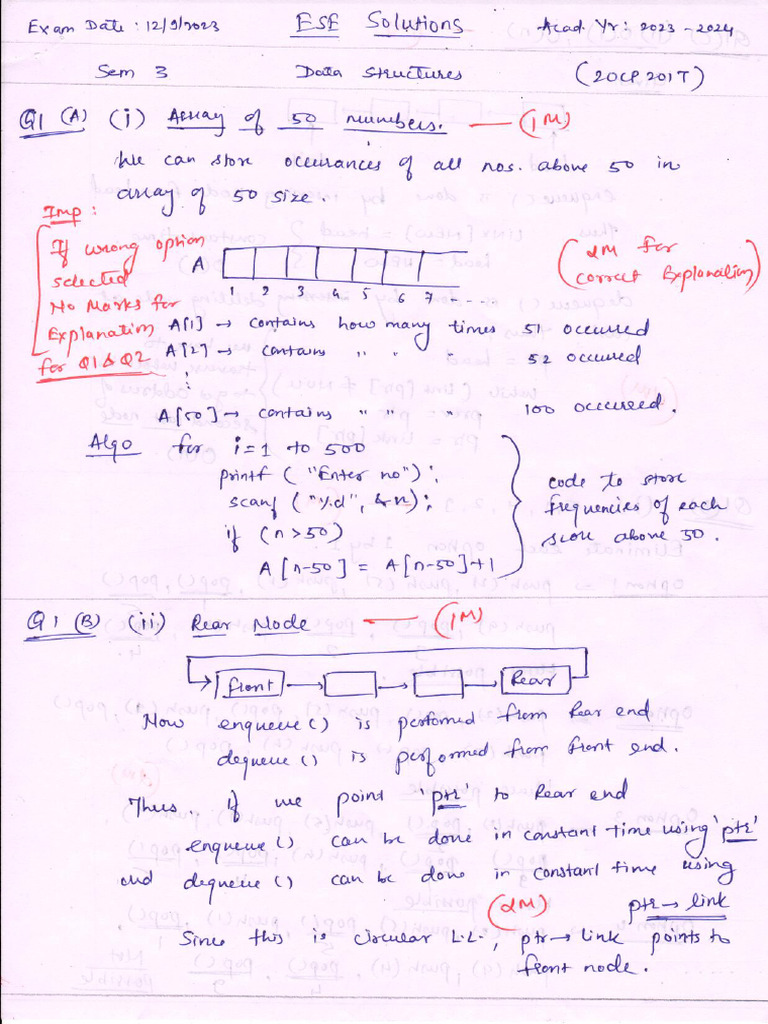 Exam Date : 12/9/2023 ESE Solutions Acad. Yr : 2023 - 2024
Sem 3 Data Structures (20CP201T)
Q1 (A) (i) Array of 50 numbers. — (1M)
We can store occurances of all nos. above 50 in
array of 50 size.
Imp :
If wrong option
selected
No Marks for
Explanation
for Q1 & Q2
A
1 2 3 4 5 6 7 - - -
(2M for
correct Explanation)
A[1] → contains how many times 51 occured
A[2] → contains " " " 52 occured
⋮
A[50] → contains " " " 100 occureed.
Algo for i=1 to 500
printf ("Enter no");
scanf ("%d", &n);
if (n>50)
A[n-50] = A[n-50]+1
code to store
frequencies of each
score above 50.
Q1 (B) (ii) Rear Node — (1M)
Front → → → Rear
Now enqueue() is performed from Rear end
dequeue() is performed from front end.
Thus. if we point 'ptr' to Rear end
enqueue() can be done in constant time using 'ptr'
and dequeue() can be done in constant time using
ptr → link
(2M)
Since this is circular L.L., ptr → link points to
front node.